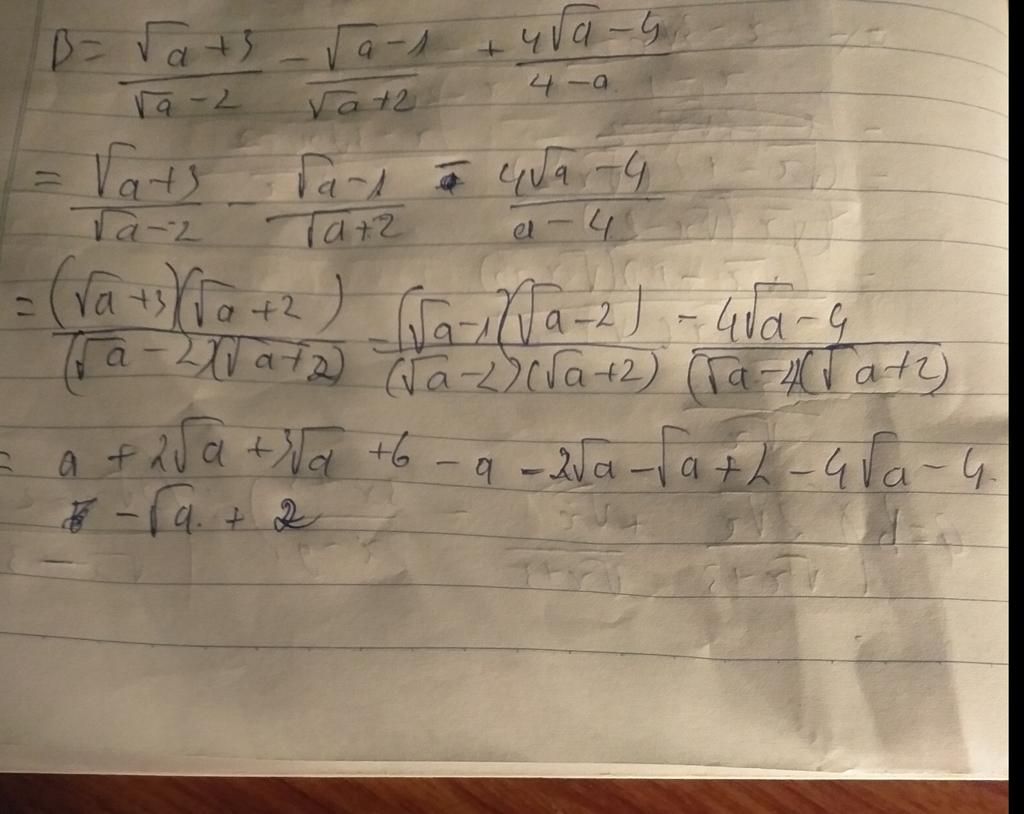 B = (√a + 3)/(√a - 2) - (√a - 1)/(√a + 2) + (4√a - 4)/(4 - a)
= (√a + 3)/(√a - 2) - (√a - 1)/(√a + 2) - (4√a - 4)/(a - 4)
= (√a + 3)(√a + 2)/(√a - 2)(√a + 2) - (√a - 1)(√a - 2)/(√a - 2)(√a + 2) - 4√a - 4/(√a - 2)(√a + 2)
= a + 2√a + 3√a + 6 - a - 2√a - √a + 2 - 4√a - 4
-√a + 2